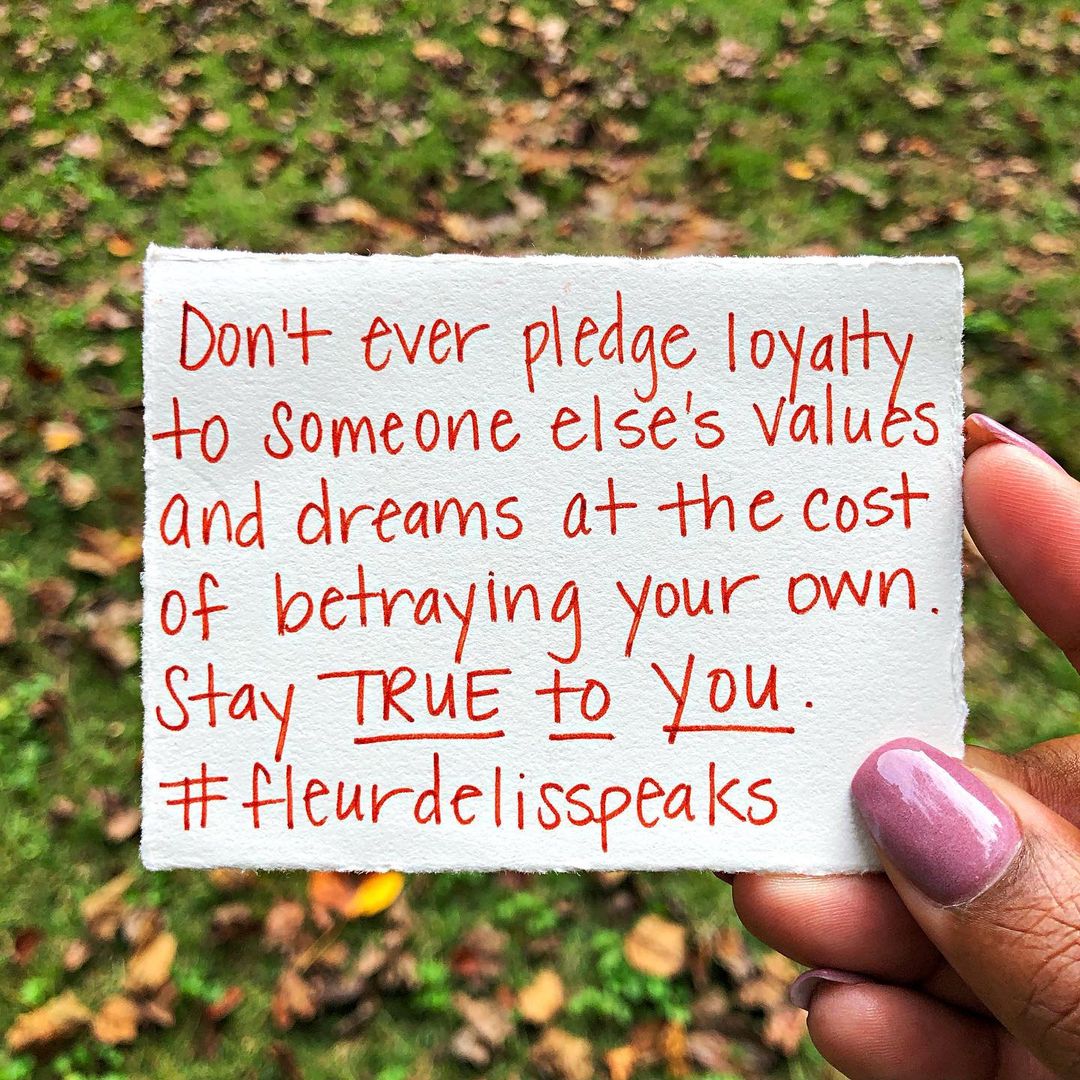 Don't ever pledge loyalty
to someone else's values
and dreams at the cost
of betraying your own.
Stay TRUE to YOU.
#fleurdelisspeaks